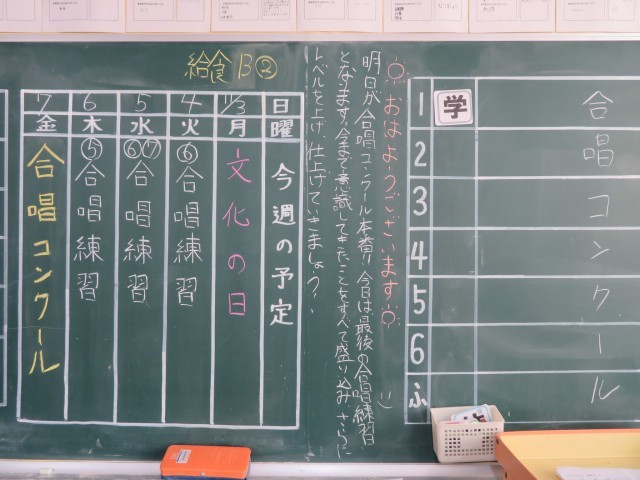 給食 B②
日 11/3 4 5 6 7
曜 月 火 水 木 金
今週の予定
文化の日
⑥合唱練習
⑥⑦合唱練習
⑤合唱練習
合唱コンクール
おはようございます
明日が合唱コンクール本番!! 今日は最後の合唱練習
となります。今まで意識してきたことをすべて盛り込み、さらに
レベルを上げ、仕上げていきましょう。
1 学
2
3
4
5
6
ふ
合唱コンクール